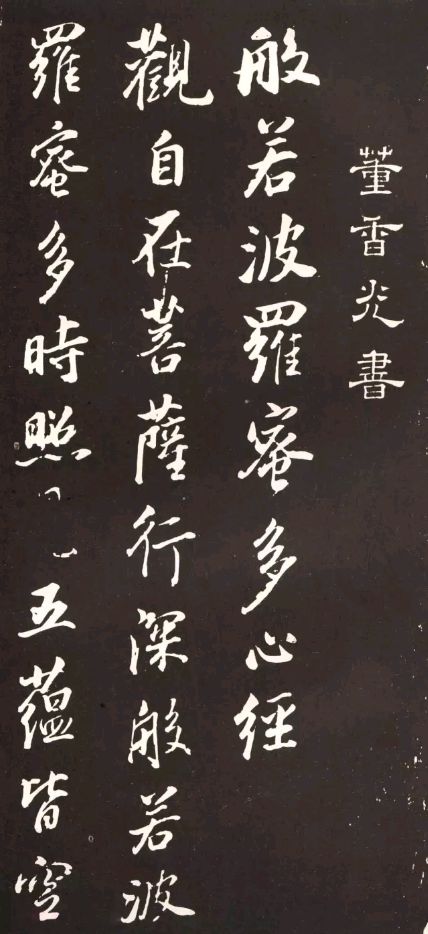 董香光書
般若波羅蜜多心經
觀自在菩薩行深般若波
羅蜜多時照見五蘊皆空